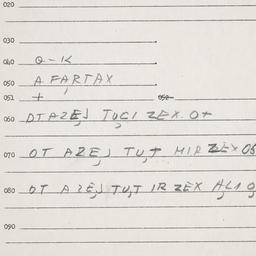 020
030
040 Q-K
050 A FARTAX
051 + 052
060 DTAZEJ TUCI ZEX. OT
070 OT AZEJ TUT MIR ZEX OS
080 OT AZEJ TUT IR ZEX ALI O
090